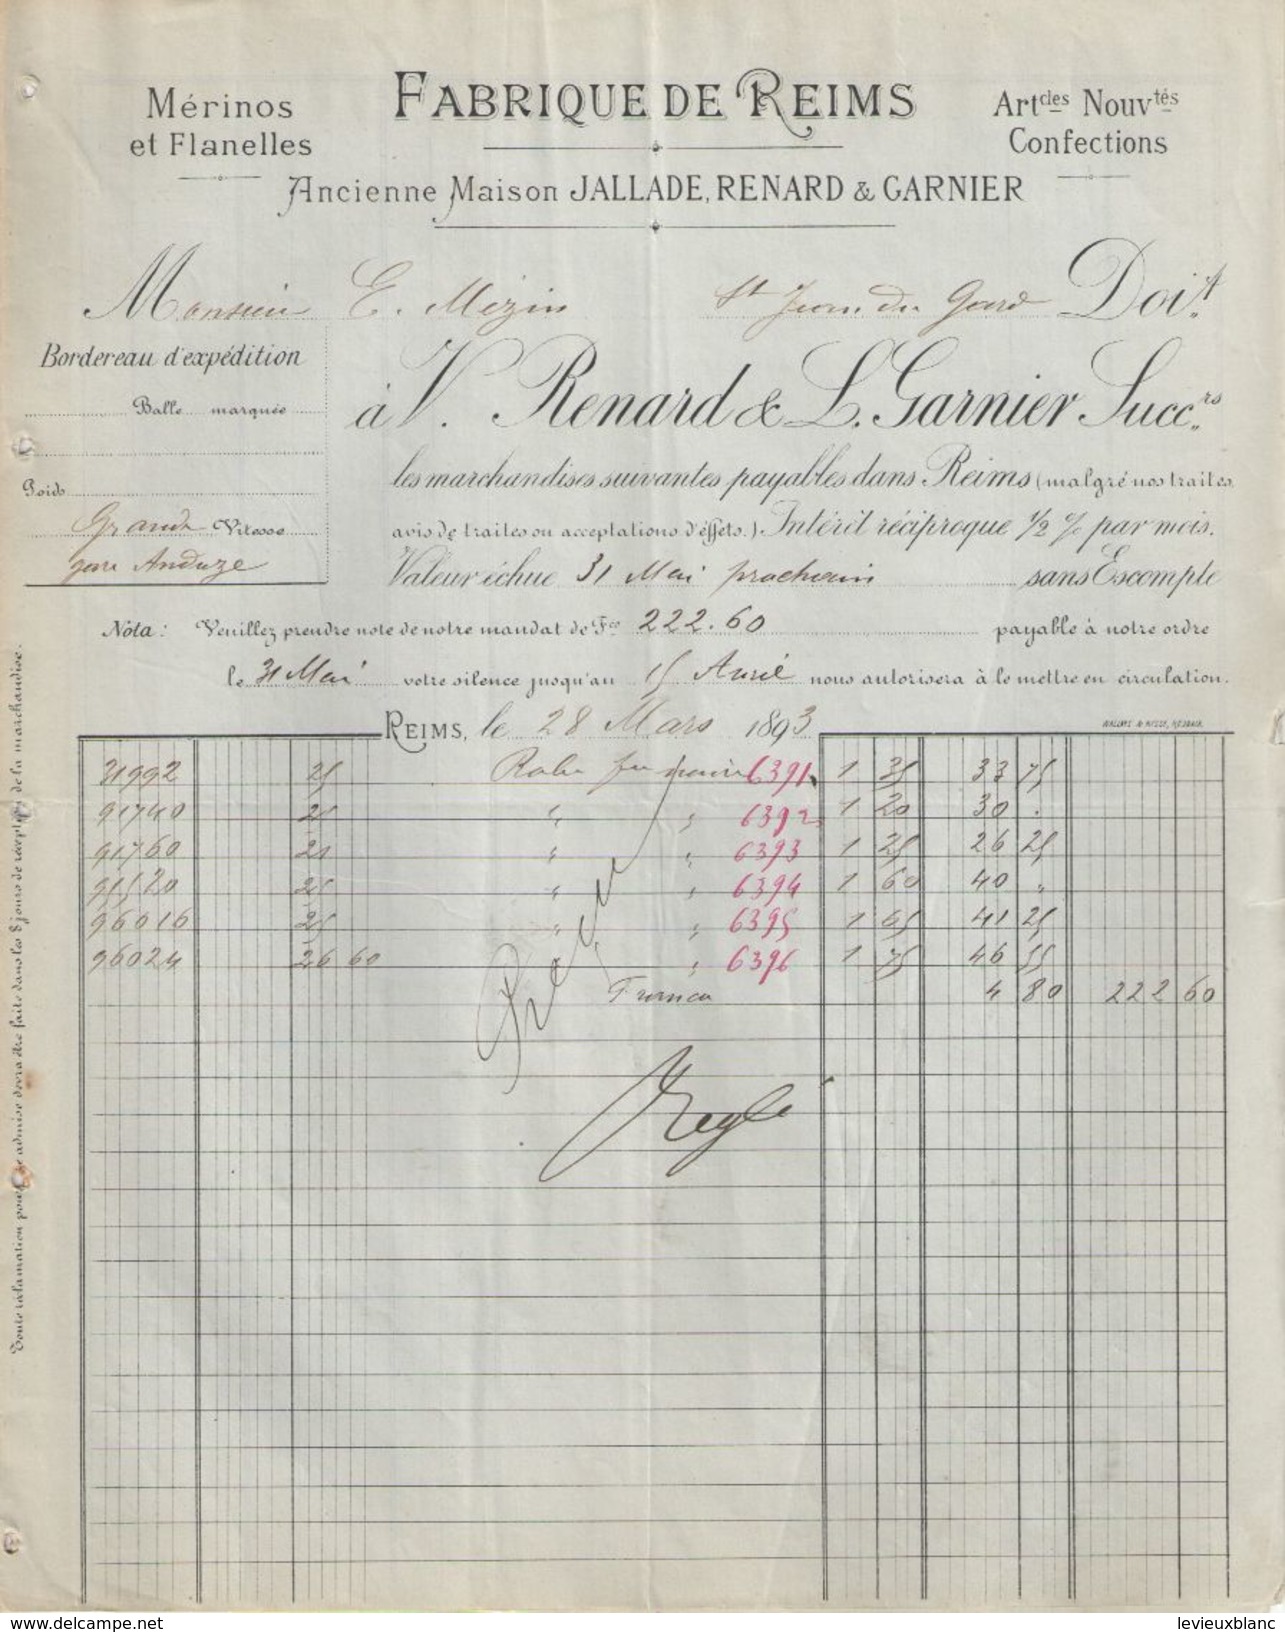 Mérinos
et Flanelles
FABRIQUE DE REIMS
Artcles Nouvtés
Confections
Ancienne Maison JALLADE, RENARD & GARNIER
Monsieur E. Mézin St Jean du Gard Doit
à V. Renard & L. Garnier Succrs
les marchandises suivantes payables dans Reims (malgré nos traites,
avis de traites ou acceptations d'effets.) Intérêt réciproque 1/2 % par mois.
Valeur échue 31 Mai prochain sans Escompte
Bordereau d'expédition
Balle marquée
Poids
Grande Vitesse
gare Anduze
Nota: Veuillez prendre note de notre mandat de Fcs 222.60 payable à notre ordre
le 31 Mai votre silence jusqu'au 15 Avril nous autorisera à le mettre en circulation.
REIMS, le 28 Mars 1893
31992 25 Robe 6391 1 35 33 75
91740 25 " " 6392 1 20 30 .
91760 21 " " 6393 1 25 26 25
95520 25 " " 6394 1 60 40 "
96016 25 " " 6395 1 65 41 25
96024 26 60 " 6396 1 75 46 55
Franco 4 80 222 60
Reçu
Réglé
Toute réclamation pour être admise devra être faite dans les 8 jours de réception de la marchandise.
levieuxblanc
delcampe.net